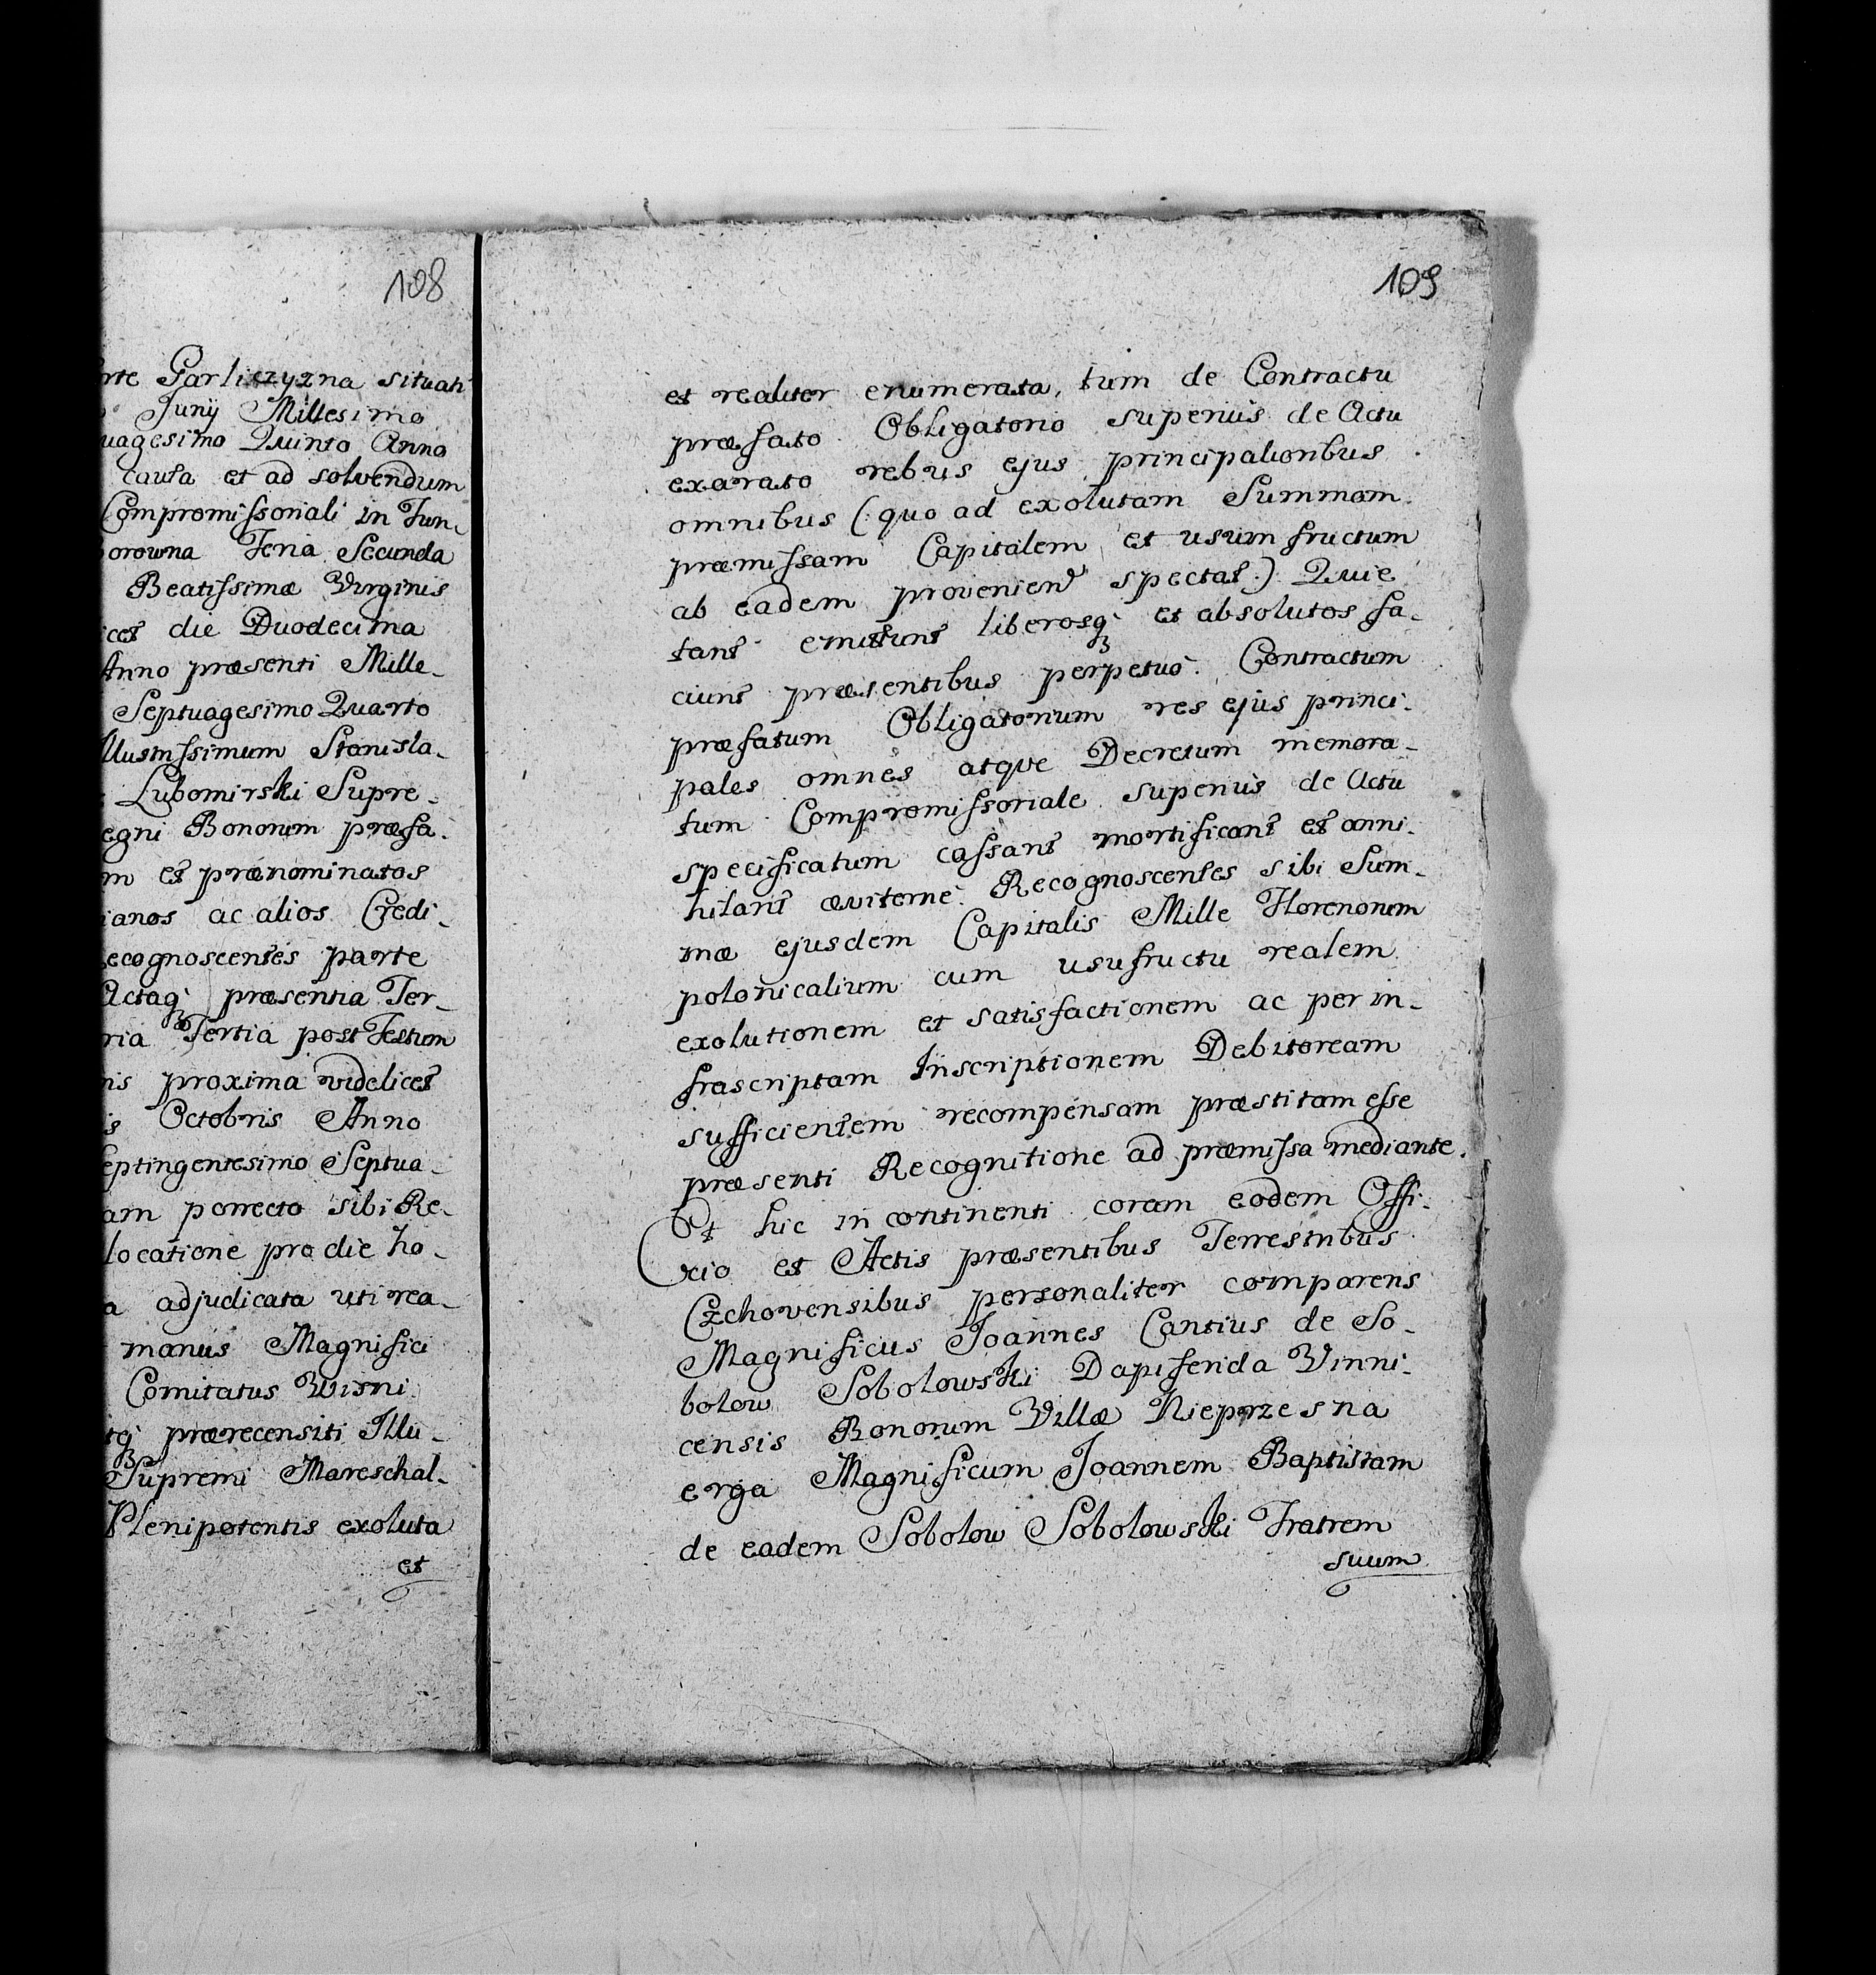 108
rte Garliczyzna situati
Junij Millesimo
uagesimo Quinto Anno
cauta et ad solvendum
Compromissoriali in Fun-
orowna Feria Secunda
Beatissimæ Virginis
die Duodecima
Anno præsenti Mille-
Septuagesimo Quarto
llustrissimum Stanisla-
Lubomirski Supre-
egni Bonorum præfa-
m et prænominatos
ianos ac alios Credi-
ecognoscentes parte
Actaq præsentia Ter-
ria Tertia post Festum
nis proxima videlicet
is Octobris Anno
eptingentesimo Septua-
am porrecto sibi Re-
locatione pro die ho-
a adjudicata uti rea-
manus Magnifici
Comitatus Wisni
præcensiti Illu-
Supremi Mareschal-
Plenipotentis exoluta
et
109
et realiter enumerata, tum de Contractu
præfato Obligatorio superius de Actu
exarato rebus ejus principalioribus
omnibus (: quo ad exolutam Summam
præmissam Capitalem et usum fructum
ab eadem proveniend spectat :) Quie
tant emittunt liberosq et absolutos fa-
ciunt præsentibus perpetuo. Contractum
præfatum Obligatorium res ejus princi-
pales omnes atque Decretum memora-
tum Compromissoriale superius de Actu
specificatum cassant mortificant et anni-
hilant æviterne. Recognoscentes sibi Sum-
mæ ejusdem Capitalis Mille Florenorum
polonicalium cum usufructu realem
exolutionem et satisfactionem ac per in-
frascriptam Inscriptionem Debitoream
sufficientem recompensam præstitam esse
præsenti Recognitione ad præmissa mediante.
Et hic in continenti coram eodem Offi-
cio et Actis præsentibus Terrestribus
Czchovensibus personaliter comparens
Magnificus Joannes Cantius de So-
bolow Sobolowski Dapiferida Vinni-
censis Bonorum Villæ Nieprzesna
erga Magnificum Joannem Baptistam
de eadem Sobolow Sobolowski Fratrem
suum